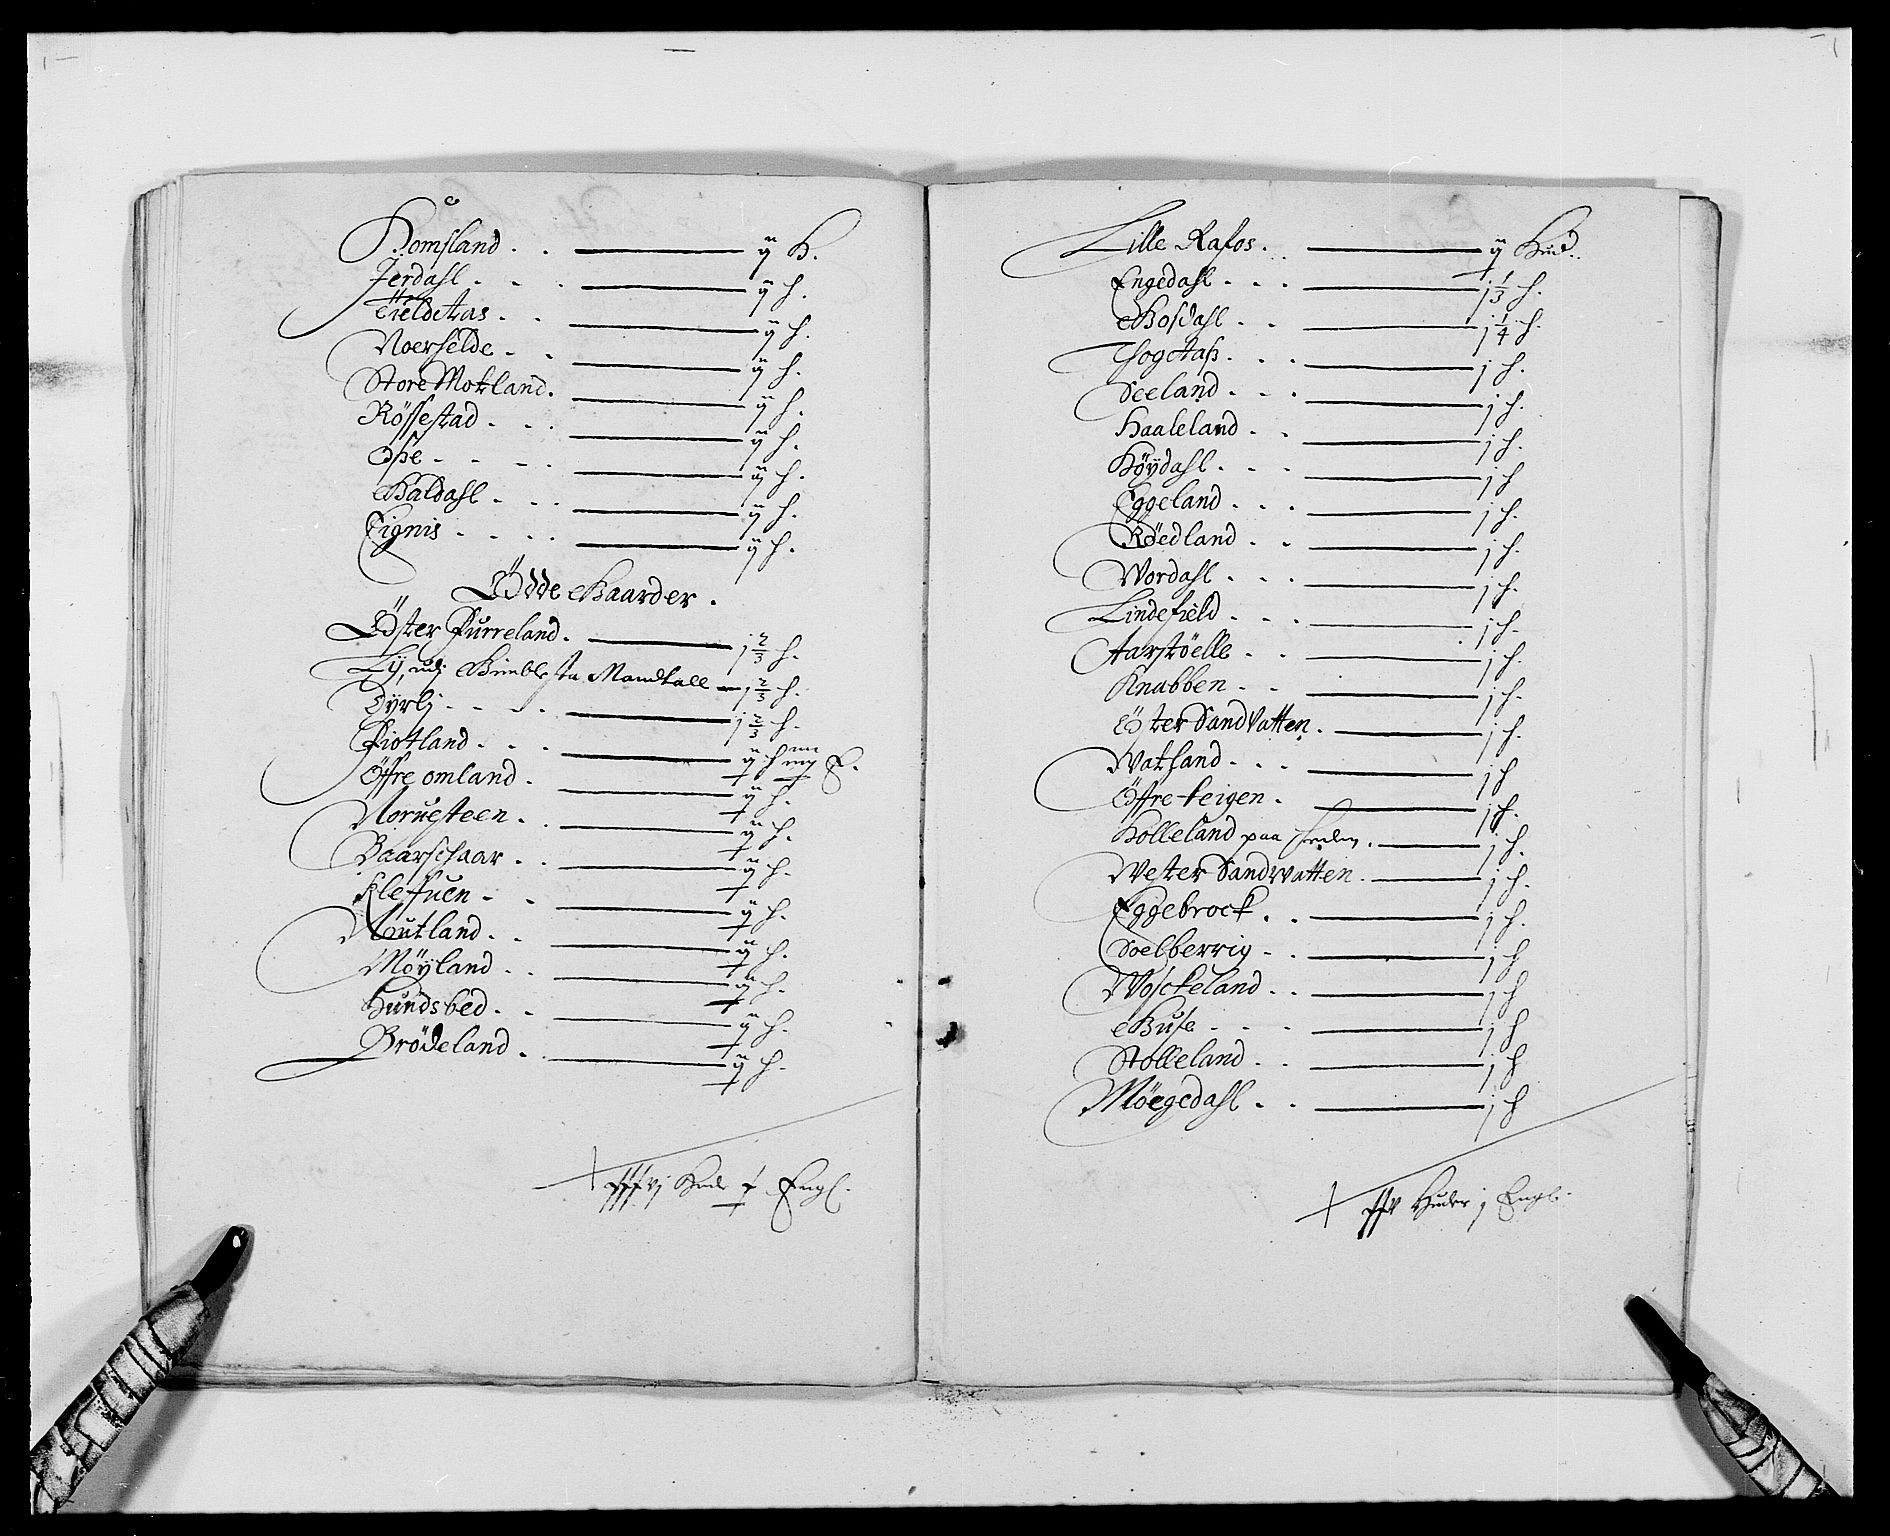 Homsland . . ij H.
Jerdahl . . . ij h.
Fieldskas . . ij h.
Noerhelde . . ij h.
Store Mokland . ij h.
Rössestad . . . ij h.
Ose . . . . ij h.
Galdahl . . . ij h.
Eignis . . . . ij h.
Ödde Gaarder .
Öster Furreland . j 2/3 h.
Lij, udj Mandtall j 2/3 h.
Dyrlj . . . . j 2/3 h.
Fiotland . . . h
Öffre omland . ij h.
Noruesteen . . ij h.
Baarschaar . . ij h.
Klefuen . . ij h.
Nutland . . ij h.
Möyland . . ij h.
Hundsbed . . ij h.
Brödeland . . ij h.
Hude Engl.
Lille Rafos . . ij Hud.
Engedahl . . . j 1/3 h.
Gosdahl . . j 1/4 h.
. . . j h.
Seeland . . . j h.
Haaleland . . j h.
Höydahl . . . j h
Eggeland . . . j h.
Röedland . . j h.
Wordahl . . . j h.
Lindefield . . . j h.
Aarstöelle . . j h.
Knabben . . j h.
Öster Sandvatten . j h.
Watland . . . j h
Öffre feigen . j h.
Holleland paa . j h.
Wester Sandvatten . j h.
Eggebrock . . j h.
Soelberrig . . j h
Woskeland . . j h
Guse . . . j h
Stolleland . . j h
Möegedahl . . j h
Huder j Engl.